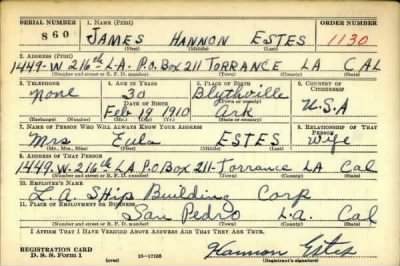 SERIAL NUMBER 1. NAME (Print) ORDER NUMBER
860 JAMES HANNON ESTES 1130
(First) (Middle) (Last)
2. ADDRESS (Print)
1449-W 216th L.A. P.O. Box 211 TORRANCE LA CAL
(Number and street or R. F. D. number) (Town) (County) (State)
3. TELEPHONE 4. AGE IN YEARS 5. PLACE OF BIRTH 6. COUNTRY OF CITIZENSHIP
None 30 Blythville
DATE OF BIRTH (Town or county)
Feb 19 1910 Ark U.S.A
(Exchange) (Number) (Mo.) (Day) (Yr.) (State or country)
7. NAME OF PERSON WHO WILL ALWAYS KNOW YOUR ADDRESS 8. RELATIONSHIP OF THAT PERSON
Mrs Eula ESTES Wife
(Mr., Mrs., Miss) (First) (Middle) (Last)
9. ADDRESS OF THAT PERSON
1449. W 216th L.A. P.O. Box 211- Torrance LA Cal
(Number and street or R. F. D. number) (Town) (County) (State)
10. EMPLOYER'S NAME
L.A. Ship Building Corp
11. PLACE OF EMPLOYMENT OR BUSINESS
San Pedro L.A. Cal
(Number and street or R. F. D. number) (Town) (County) (State)
I AFFIRM THAT I HAVE VERIFIED ABOVE ANSWERS AND THAT THEY ARE TRUE.
REGISTRATION CARD
D. S. S. Form 1 (over) Hannon Estes
(Registrant's signature)